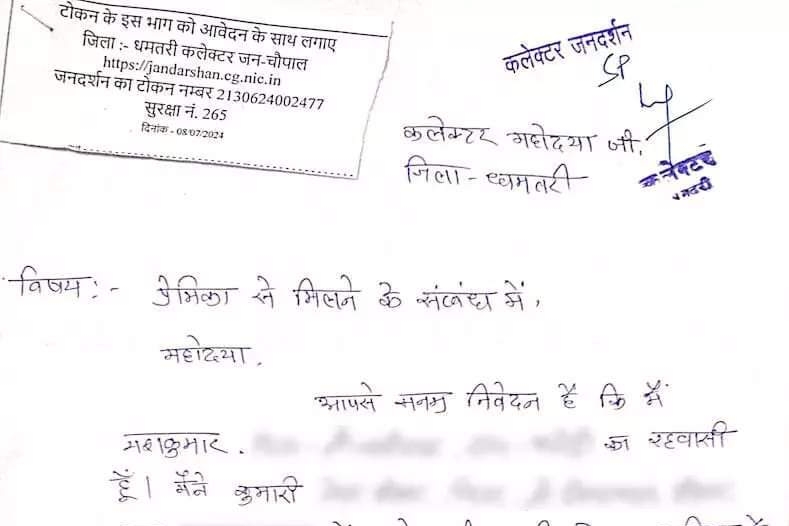 टोकन के इस भाग को आवेदन के साथ लगाए
जिला :- धमतरी कलेक्टर जन-चौपाल
https://jandarshan.cg.nic.in
जनदर्शन का टोकन नम्बर 2130624002477
सुरक्षा नं. 265
दिनांक - 08/07/2024
कलेक्टर जनदर्शन
SP
कलेक्टर महोदया जी,
जिला - धमतरी
विषय :- प्रेमिका से मिलने के संबंध में,
महोदया,
आपसे सनम्र निवेदन है कि मैं
का रहवासी
हूँ। मैंने कुमारी